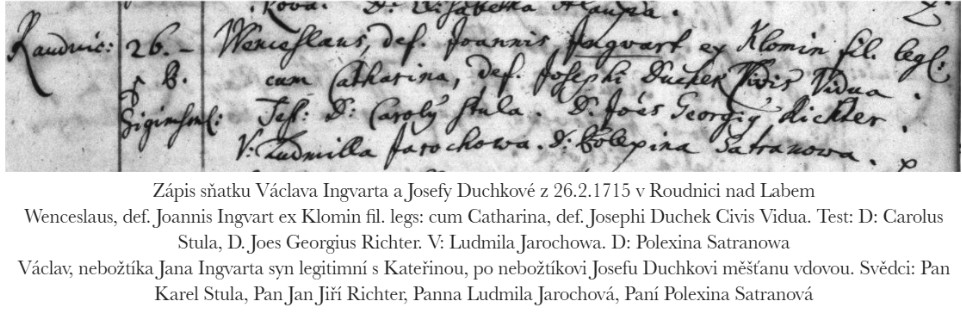 Raudnic: 26. Wenceslaus, def. Joannis Ingvart ex Klomin fil. legs:
cum Catharina, def. Josephi Duchek Civis Vidua
Test: D: Carolus Stula. D. Joes Georgius Richter.
V: Ludmilla Jarochowa. D: Polexina Satranowa.
Zápis sňatku Václava Ingvarta a Josefy Duchkové z 26.2.1715 v Roudnici nad Labem
Wenceslaus, def. Joannis Ingvart ex Klomin fil. legs: cum Catharina, def. Josephi Duchek Civis Vidua. Test: D: Carolus
Stula, D. Joes Georgius Richter. V: Ludmila Jarochowa. D: Polexina Satranowa
Václav, nebožtíka Jana Ingvarta syn legitimní s Kateřinou, po nebožtíkovi Josefu Duchkovi měšťanu vdovou. Svědci: Pan
Karel Stula, Pan Jan Jiří Richter, Panna Ludmila Jarochová, Paní Polexina Satranová